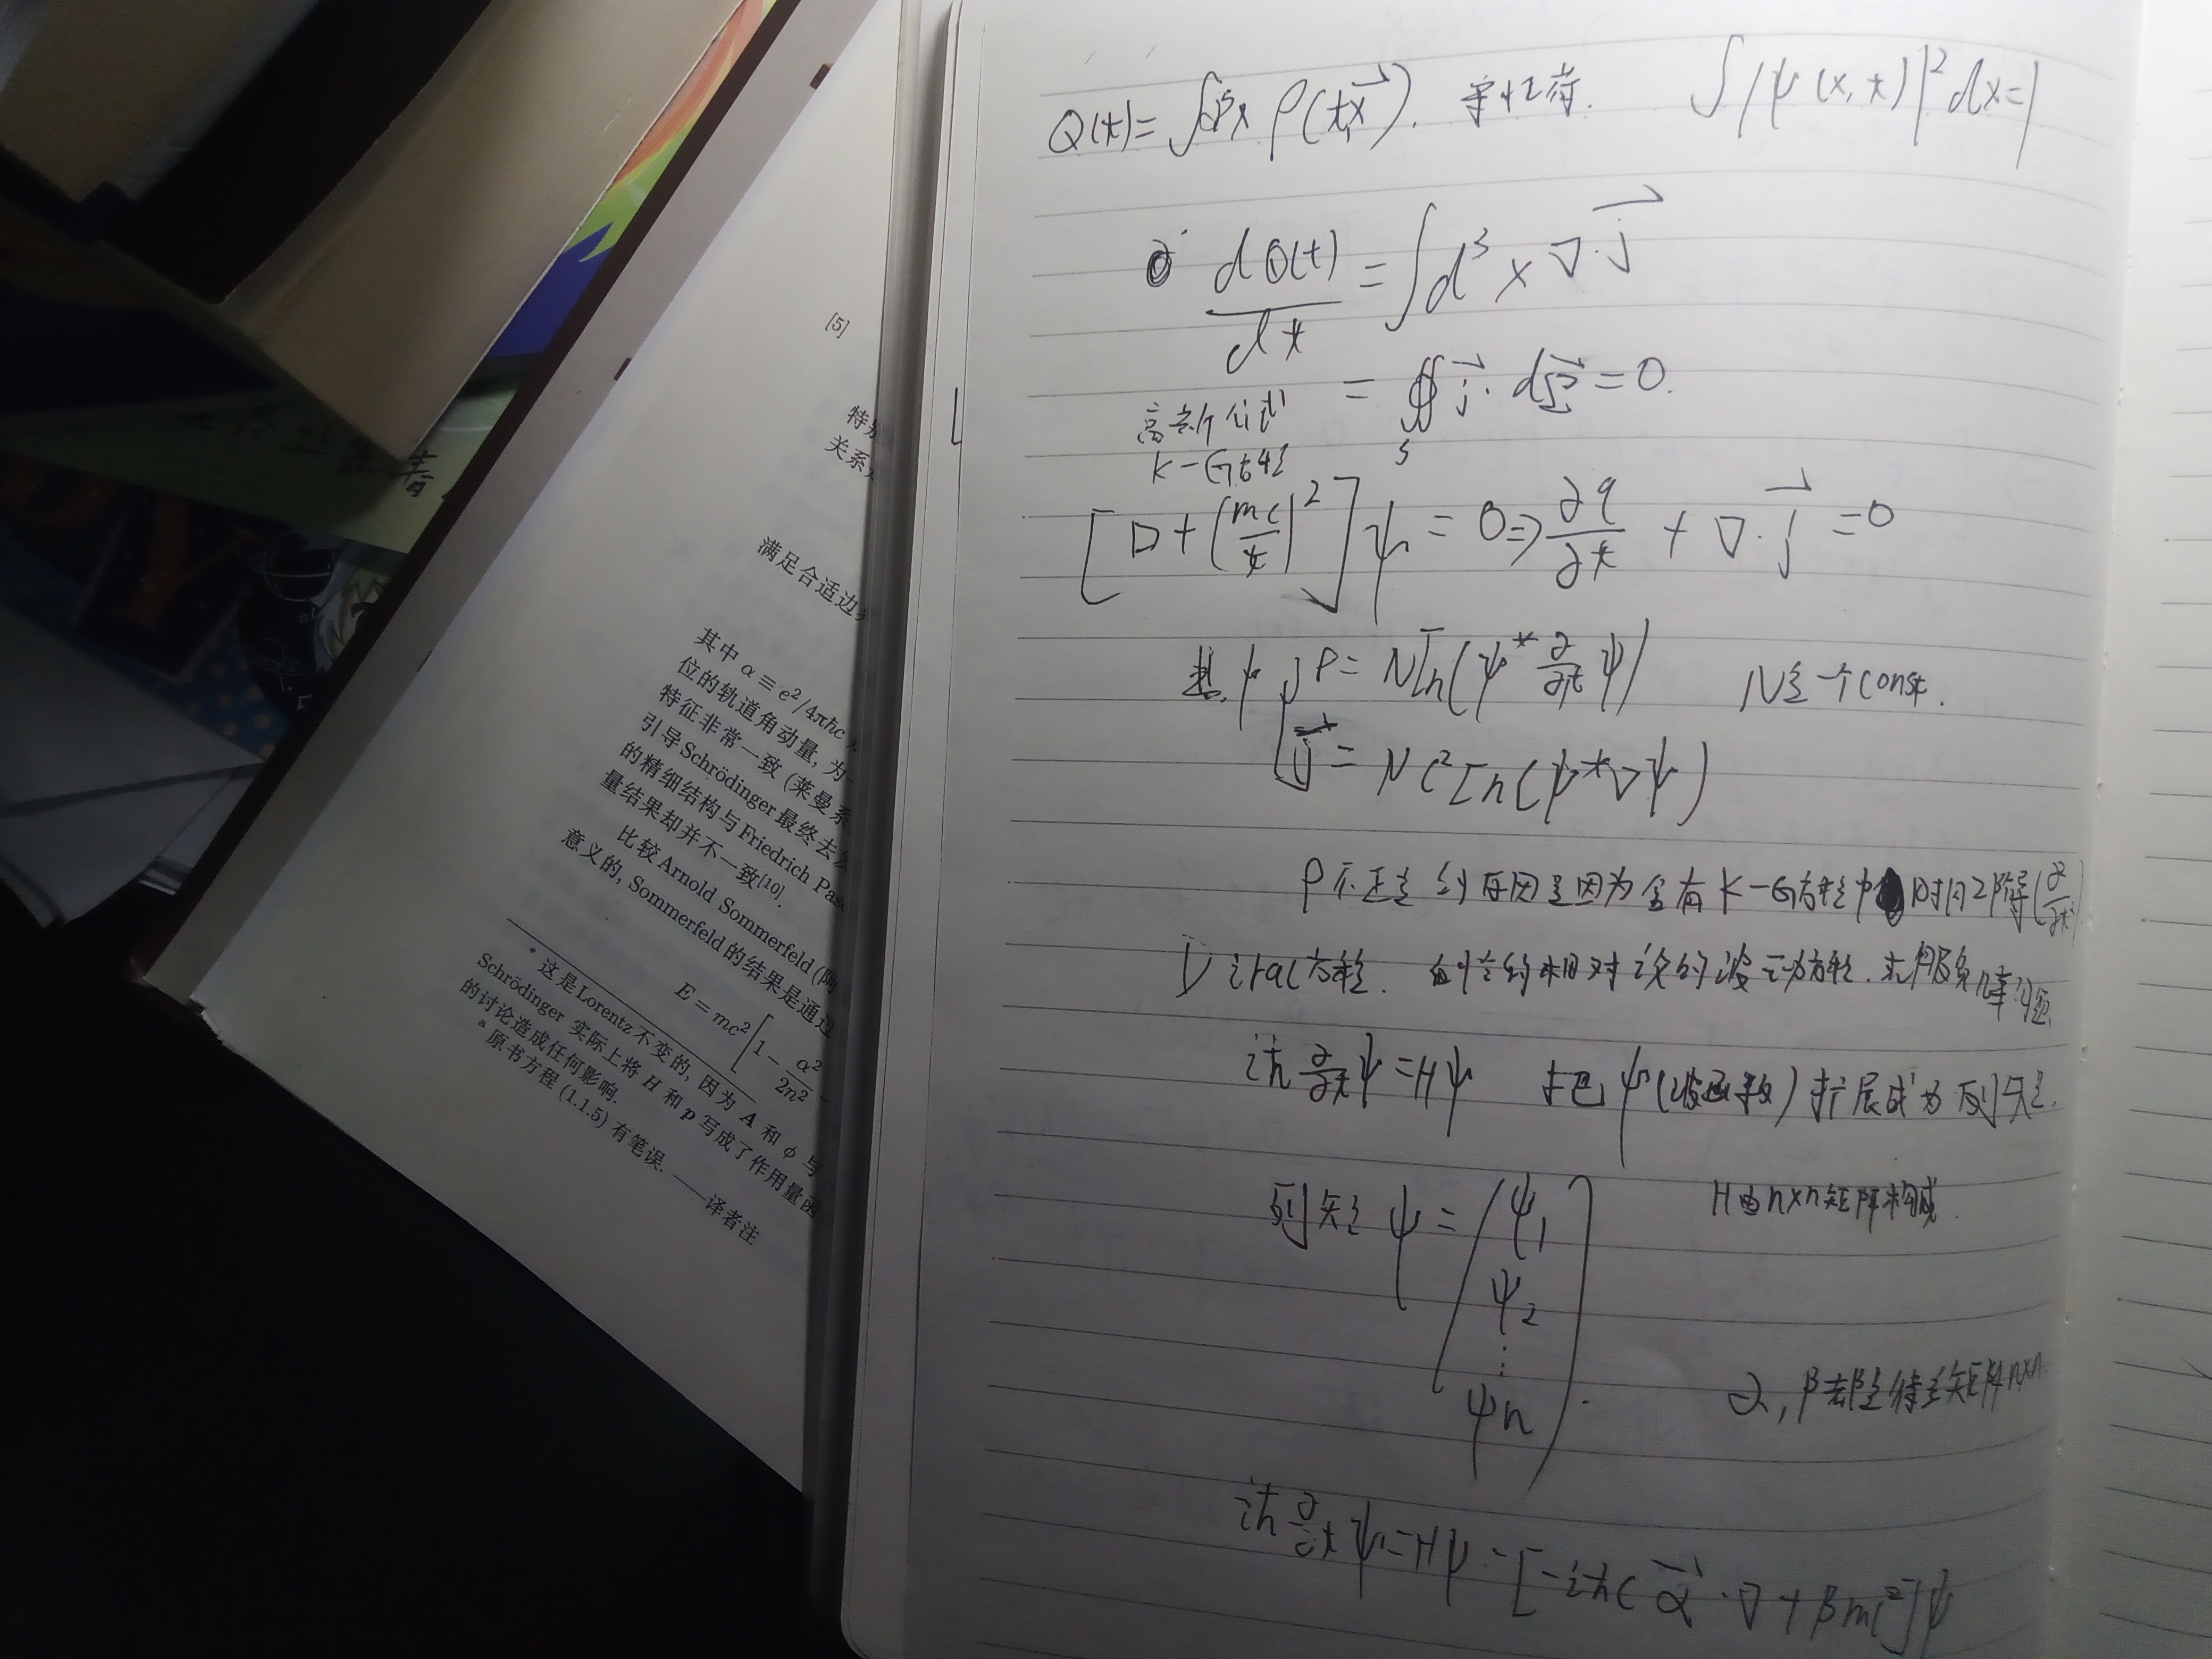 [5]
特别
关系
满足合适边
其中 α ≡ e²/4πħc
位的轨道角动量, 为
特征非常一致 (莱曼系
引导Schrödinger最终去
的精细结构与Friedrich Pas
量结果却并不一致[10].
比较Arnold Sommerfeld (阿
意义的, Sommerfeld的结果是通过
E = mc² [1 − α²/2n² −
* 这是Lorentz不变的, 因为 A 和 ϕ 与
Schrödinger 实际上将 H 和 p 写成了作用量函
的讨论造成任何影响.
a 原书方程 (1.1.5) 有笔误. ——译者注
Q(t) = ∫d³x ρ(t,x⃗). 守恒荷. ∫|ψ(x,t)|² dx = 1
dQ(t)/dt = ∫d³x ∇·j⃗
= ∯ₛ j⃗·dS⃗ = 0.
高斯公式
K-G方程
[□ + (mc/ħ)²]ψ = 0 ⇒ ∂ρ/∂t + ∇·j⃗ = 0
其中 { ρ = N Im(ψ* ∂/∂t ψ) N是一个const.
j⃗ = N c² Im(ψ*∇ψ)
ρ不正定的原因是因为含有K-G方程中时间2阶导(∂/∂t)
Dirac方程. 自恰的相对论的波动方程. 克服负概率问题
iħ ∂/∂t ψ = Hψ 把ψ(波函数)扩展成为列矢.
列矢 ψ = (ψ₁ H由n×n矩阵构成.
ψ₂
⋮
ψn). α, β都是待定矩阵n×n.
iħ ∂/∂t ψ = Hψ = [-iħc α⃗·∇ + βmc²]ψ